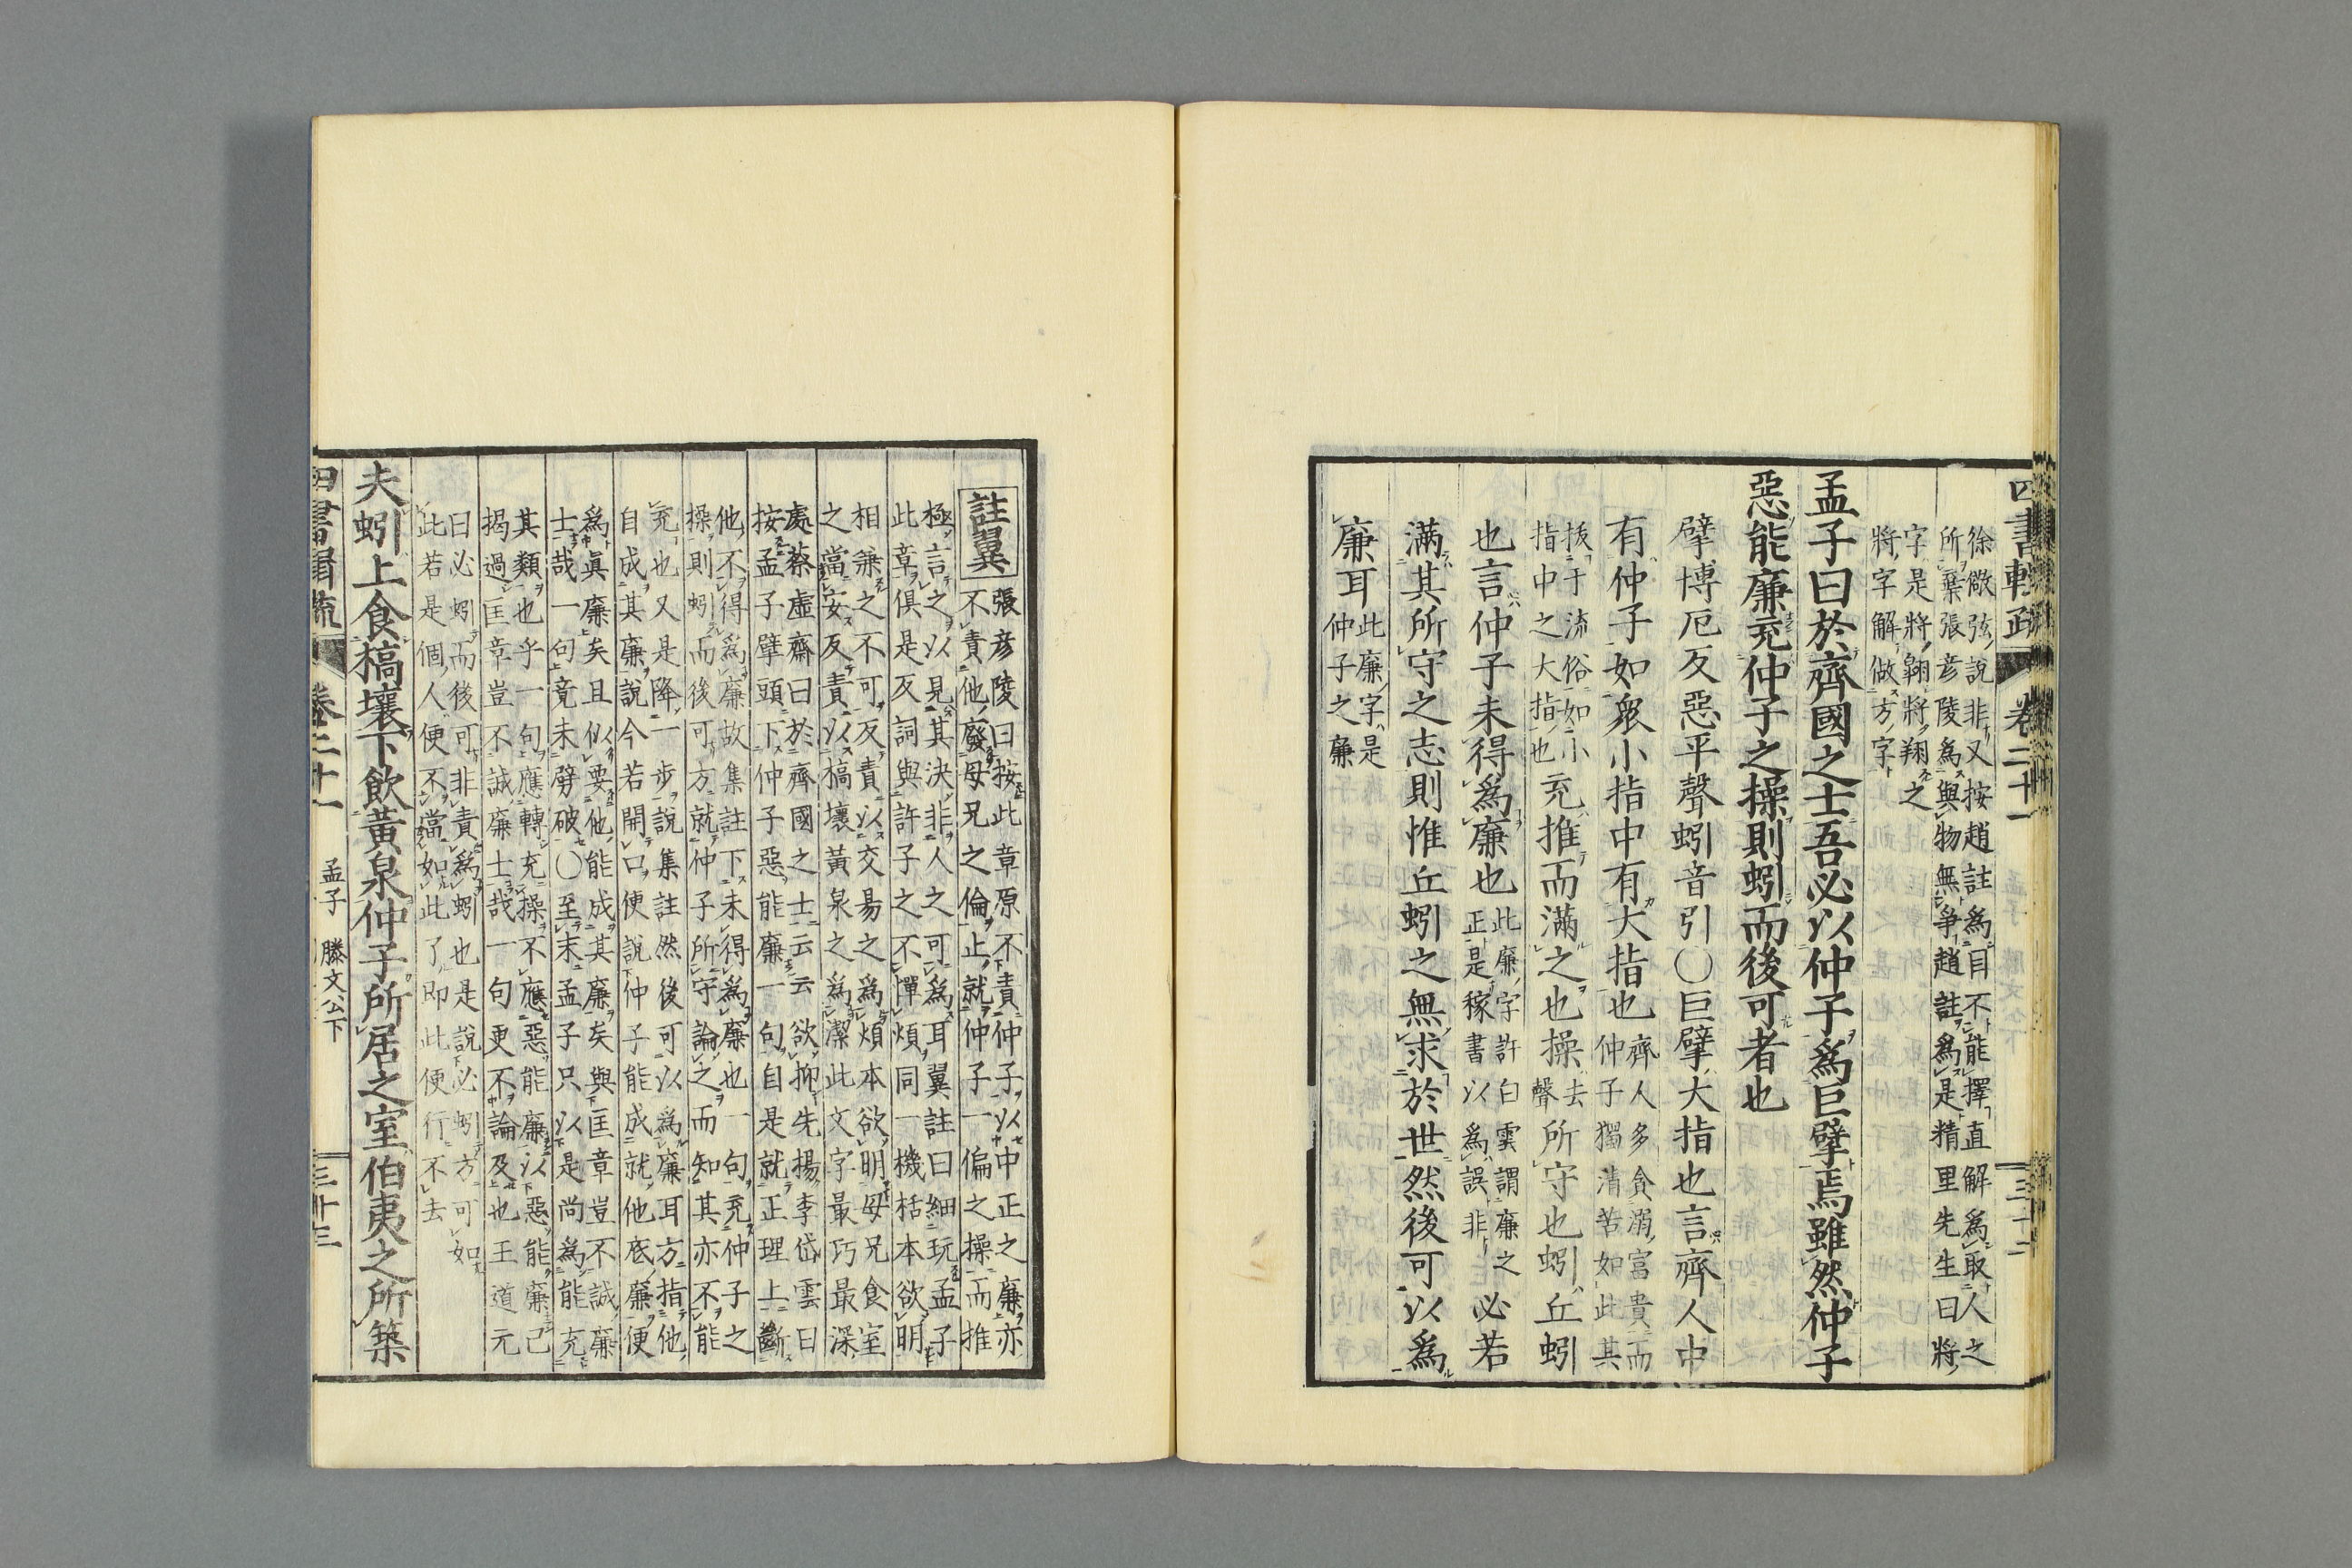 徐儆弦說非又按趙註為目不能擇直解為取人之
所棄張彥陵為與物無爭趙註為是精里先生曰將
字是將翺將翔之
將字解做方字
孟子曰於齊國之士吾必以仲子為巨擘焉雖然仲子
惡能廉充仲子之操則蚓而後可者也
擘博厄反惡平聲蚓音引〇巨擘大指也言齊人中
有仲子如眾小指中有大指也
齊人多貪溺富貴而
仲子獨清苦如此其
拔于流俗如小
指中之大指也
充推而滿之也操
去
聲
所守也蚓丘蚓
也言仲子未得為廉也
此廉字許白雲謂廉之
正是稼書以為誤非
必若
滿其所守之志則惟丘蚓之無求於世然後可以為
廉耳
此廉字是
仲子之廉
註翼
張彥陵曰按此章原不責仲子以中正之廉亦
不責他廢母兄之倫止就仲子一偏之操而推
極言之以見其決非人之可為耳翼註曰細玩孟子
此章俱是反詞與許子之不憚煩同一機括本欲明
相兼之不可反責以交易之為煩本欲明母兄食室
之當安反責以槁壤黃泉之為潔此文字最巧最深
處蔡虛齋曰於齊國之士云云欲抑先揚李岱雲曰
按孟子擘頭下仲子惡能廉一句自是就正理上斷
他不得為廉故集註下未得為廉也一句充仲子之
操則蚓而後可方就仲子所守論之而知其亦不能
充也又是降一步說集註然後可以為廉耳方指他
自成其廉說今若開口便說仲子能成就他底廉便
為眞廉矣且似要他能成其廉矣與匡章豈不誠廉
士哉一句竟未劈破〇至末孟子只以是尚為能充
其類也乎一句應轉充操不應惡能廉以惡能廉已
揭過匡章豈不誠廉士哉一句更不論及也王道元
曰必蚓而後可非責為蚓也是說必蚓方可如
此若是個人便不當如此了即此便行不去
夫蚓上食槁壤下飲黃泉仲子所居之室伯夷之所築
卷二十一
孟子
滕文公下
三十三